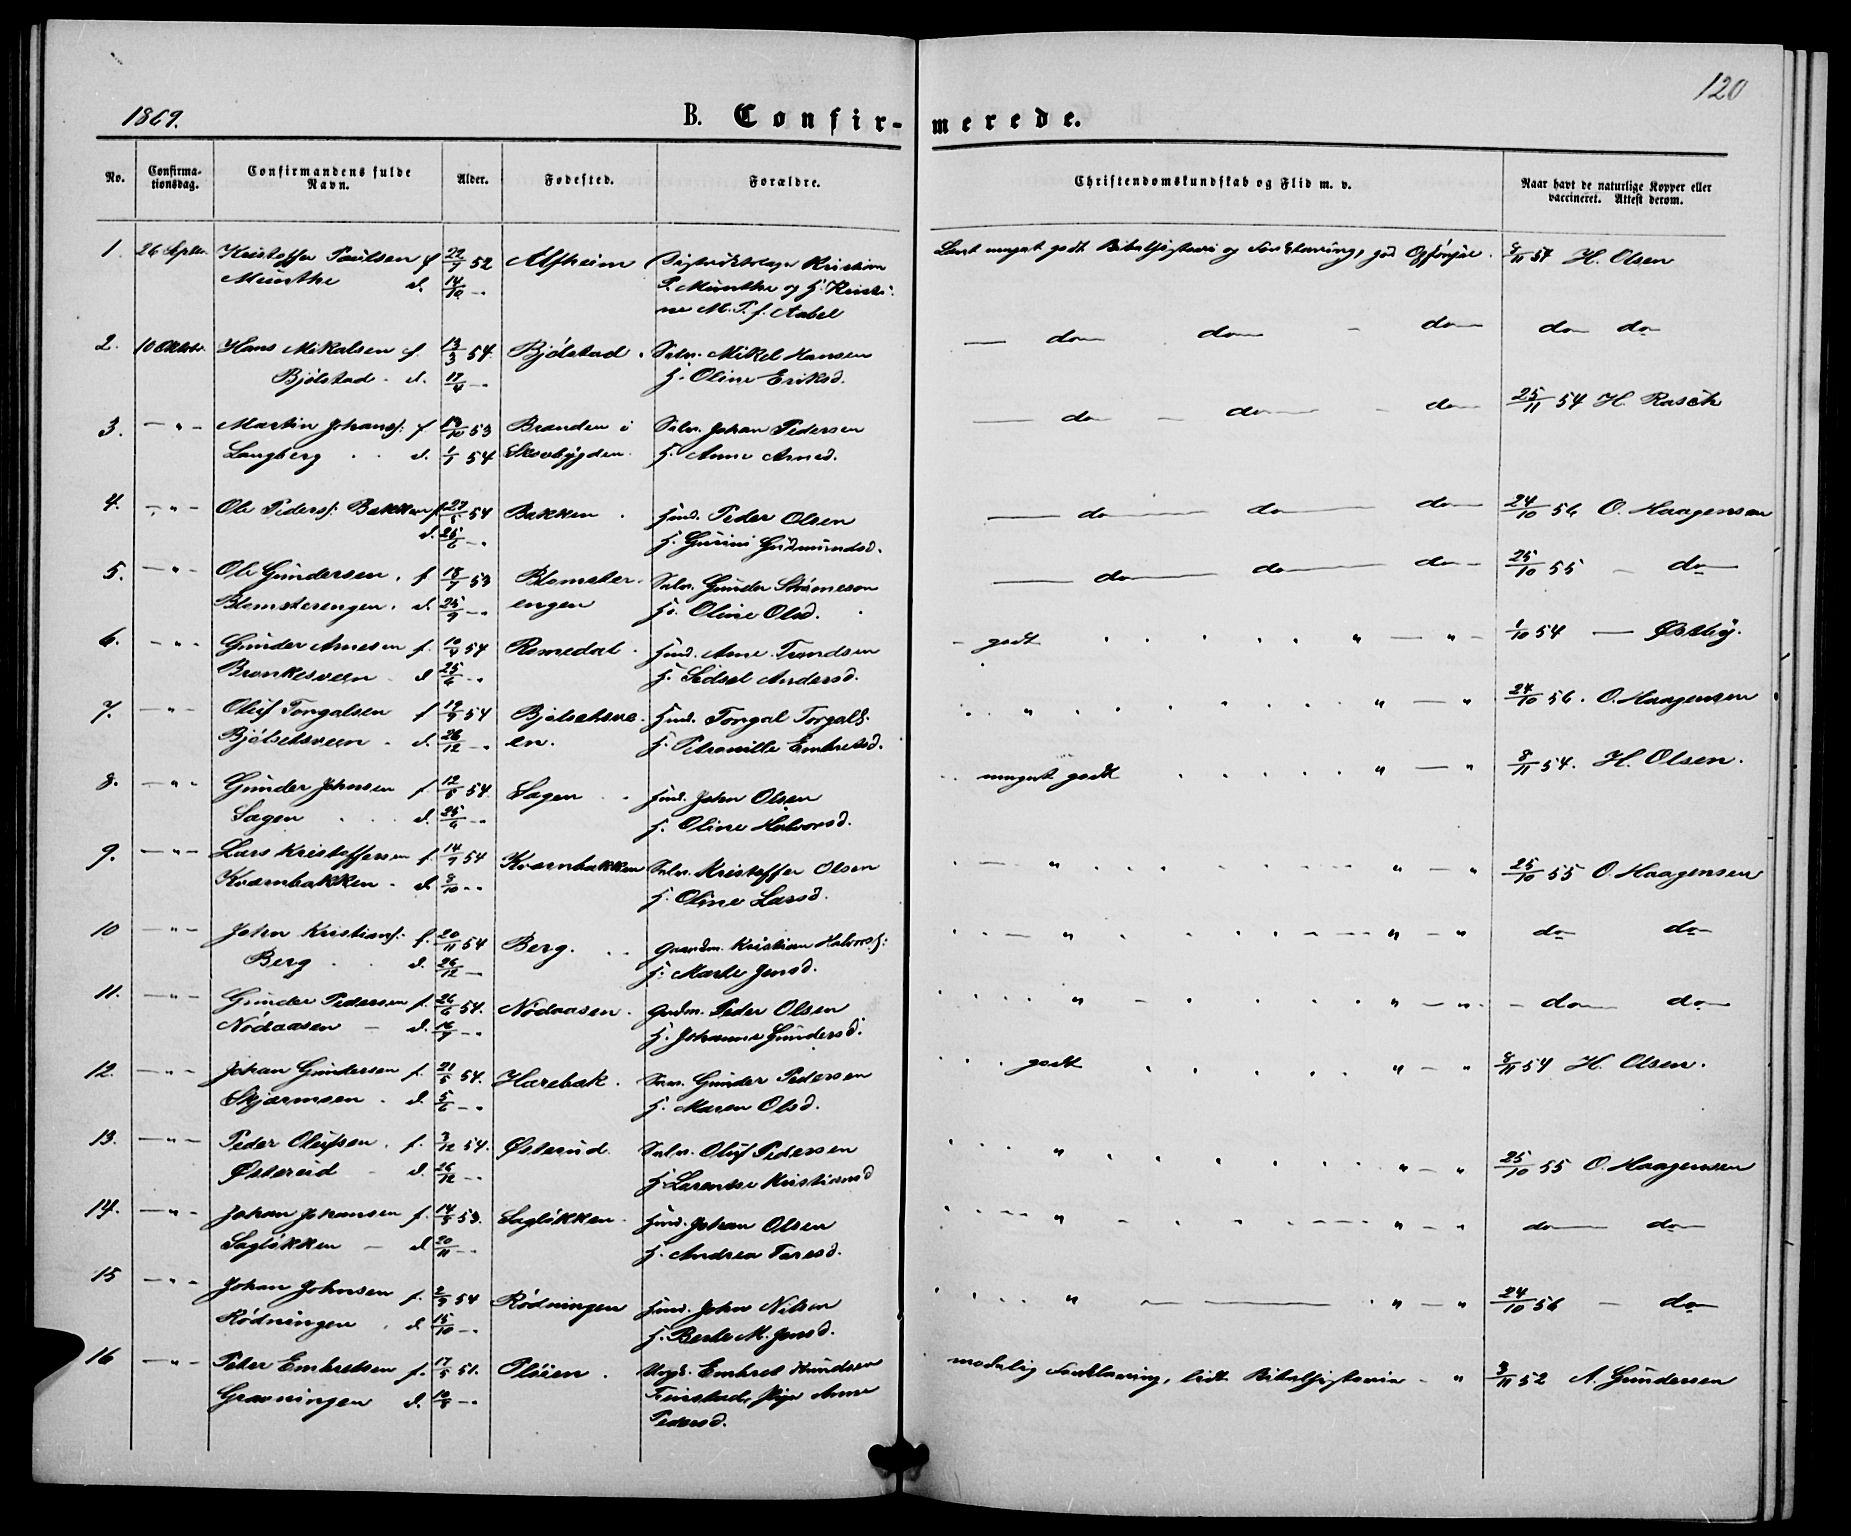 120
1869.
B. Confir- merede.
No.
Confirma-
tionsdag.
Confirmandens fulde
Navn.
Alder.
Fødested.
Forældre.
Christendomskundskab og Flid m. v.
Naar havt de naturlige Kopper eller
vaccineret. Attest derom.
1. 26 Septbr. Kristoffer Paulsen f 22/7 52 Alfheim Kristian
Munthe d. 14/10 -„ P. Munthe og H. Kristi-
ne M. P. f. Aabel
meget godt Bibelhistorie og Forklaring, god Opførsel. 8/11 54 H. Olsen
2. 10 Oktobr. Hans Mikalsen f. 13/3 54. Bjølstad. Selv. Mikel Hansen
Bjølstad - d. 17/4 -„ H. Oline Eriksd.
— do — do - do do do
3. — „ - Martin Johans: f 19/10 53 Branden i Selv. Johan Pedersen
Langberg . . d. 1/1 54 Skovbygden. H. Anne Arnesd.
— do - do - do 25/11 54 H. Rasch
4. — „ - Ole Peders: Bakken f. 27/5 54 Bakken . Husm. Peder Olsen
d. 25/6 -„ H. Gurine Gudmundsd.
— do — do — do 24/10 56 O. Haagensen
5. — „ - Ole Gundersen . f 18/7 53 Blomster- Selv. Gunder
Blomsterengen. d. 25/9 -„ engen H. Oline Olsd.
— do — do — do - 25/10 55 — do
6. — „ - Gunder Arnesen f. 10/4 54 Romedal . Husm. Arne Trondsen
d 25/6 -„ H. Sidsel Andersd.
- godt . . . . . . „ — „ - 1/10 54 — Østby.
7. — „ - Oluf Torgalsen f 19/9 54 Bjølsetsve- Husm. Torgal Torgals:
Bjølsetsveen . d. 26/12 -„ en. H. Petronille Embretsd.
. . „ . . . . . . . „ — „ 24/10 56. O. Haagensen
8. — „ - Gunder Johnsen f 12/5 54 Sagen . . Husm. John Olsen
Sagen . . . d. 25/6 -„ H. Oline Halvorsd.
. . meget godt . . . . . „ — „ 8/11 54. H. Olsen.
9. — „ - Lars Kristoffersen f. 14/9 54 Kvernbakken Selv. Kristoffer Olsen
Kvernbakken - d. 8/10 -„ H. Oline Larsd.
. — „ . . . . . . „ — „ 25/10 55 O. Haagensen
10 — „ - John Kristians: f. 20/11 54 Berg. . . Kristian Halvors:
Berg . . d. 26/12 — H. Marte Jensd.
. . — „ . . . . „ — „ do do
11. — „ - Gunder Pedersen f. 26/6 54. Nødaasen . Peder Olsen
Nødaasen — d. 16/7 -„ H. Johanne Gundersd.
. . . . „ - . . . . . „ — „ . - do do
12. — „ - Johan Gundersen f. 21/5 54. Harebak . Gunder Pedersen
. d. 5/6 -„ H. Maren Olsd.
. . . godt . . . . . „ — „ 8/11 54 H. Olsen.
13. — „ - Peder Olufsen . f. 3/12 54. Østerud. Selv. Oluf Pedersen
Østerud - d. 26/12 -„ H. Larentse Kristiansd
. . . „ . . . . . . „ — „ 25/10 55 O. Haagensen
14. — „ - Johan Johansen f. 14/9 53. Sagløkken. Husm. Johan Olsen
Sagløkken — d 20/11 -„ H. Andrea Toresd.
. . . . „ . - . . . . „ — „ do do
15 — „ - Johan Johnsen f. 2/9 54 Rødningen Husm. John Nilsen
Rødningen . d 15/10 -„ H. Berte M. Jensd.
. . . . „ — — . „ — „ 24/10 56 — do
16 — „ - Peter Embretsen f. 17/5 51. Oløien . Embret Knudsen
Grønningen d. -„ Finstad, Pige Anne
Pedersd.
maadelig Forklaring, lidt Bibelhistorie - „ 3/11 52 A. Gundersen